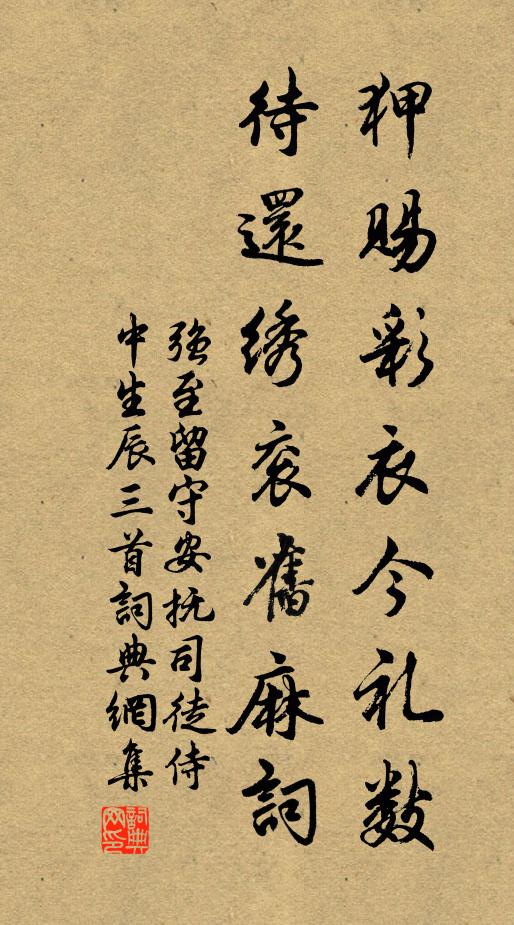 狎賜彩衣今礼數
待還綉衮舊麻詞
強至留守安抚司徒侍
中生辰三首詞典網集
詞典网印